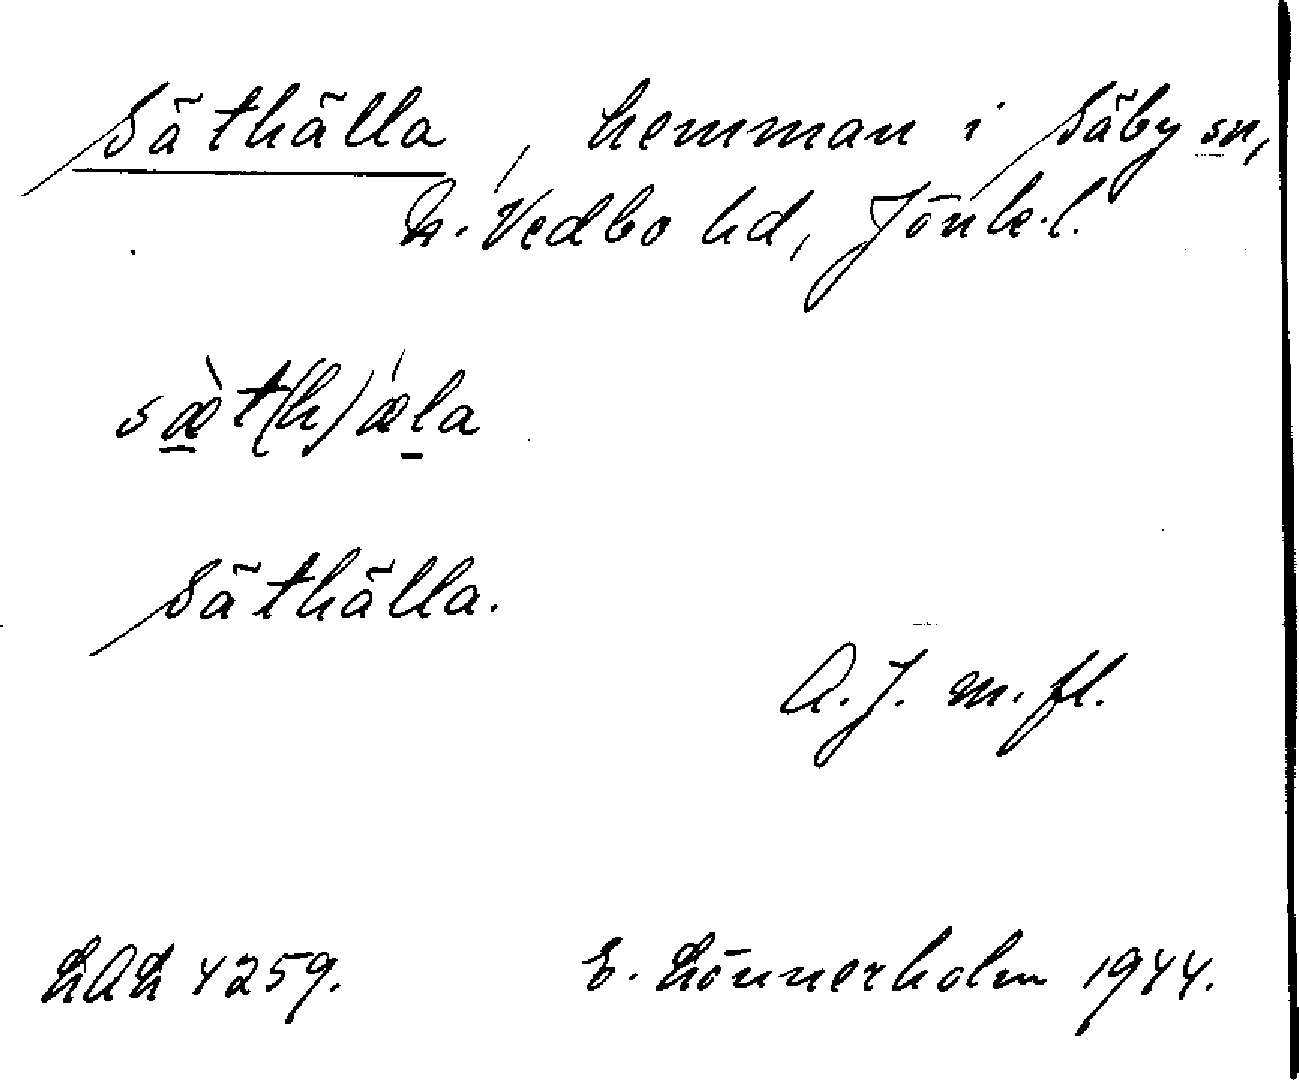 Säthälla, hemman i Säby sn,
N. Vedbo hd, Jönk. l.
sæ̀t(h)ǽla
Säthälla.
A. J. m. fl.
LAL 4259.
E. Lönnerholm 1944.